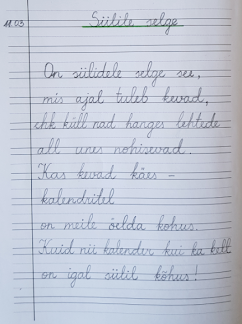 11.03 Siilile selge
On siilidele selge see,
mis ajal tuleb kevad,
ehk küll nad hanges lehtede
all unes nohisevad.
Kas kevad käes -
kalendritel
on meile öelda kohus.
Kuid nii kalender kui ka kell
on igal siilil kõhus!